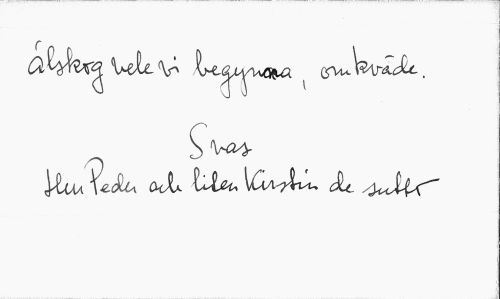 Älskog vele vi begynna, omkväde.
Svas
Herr Peder och liten Kirstin de sutto